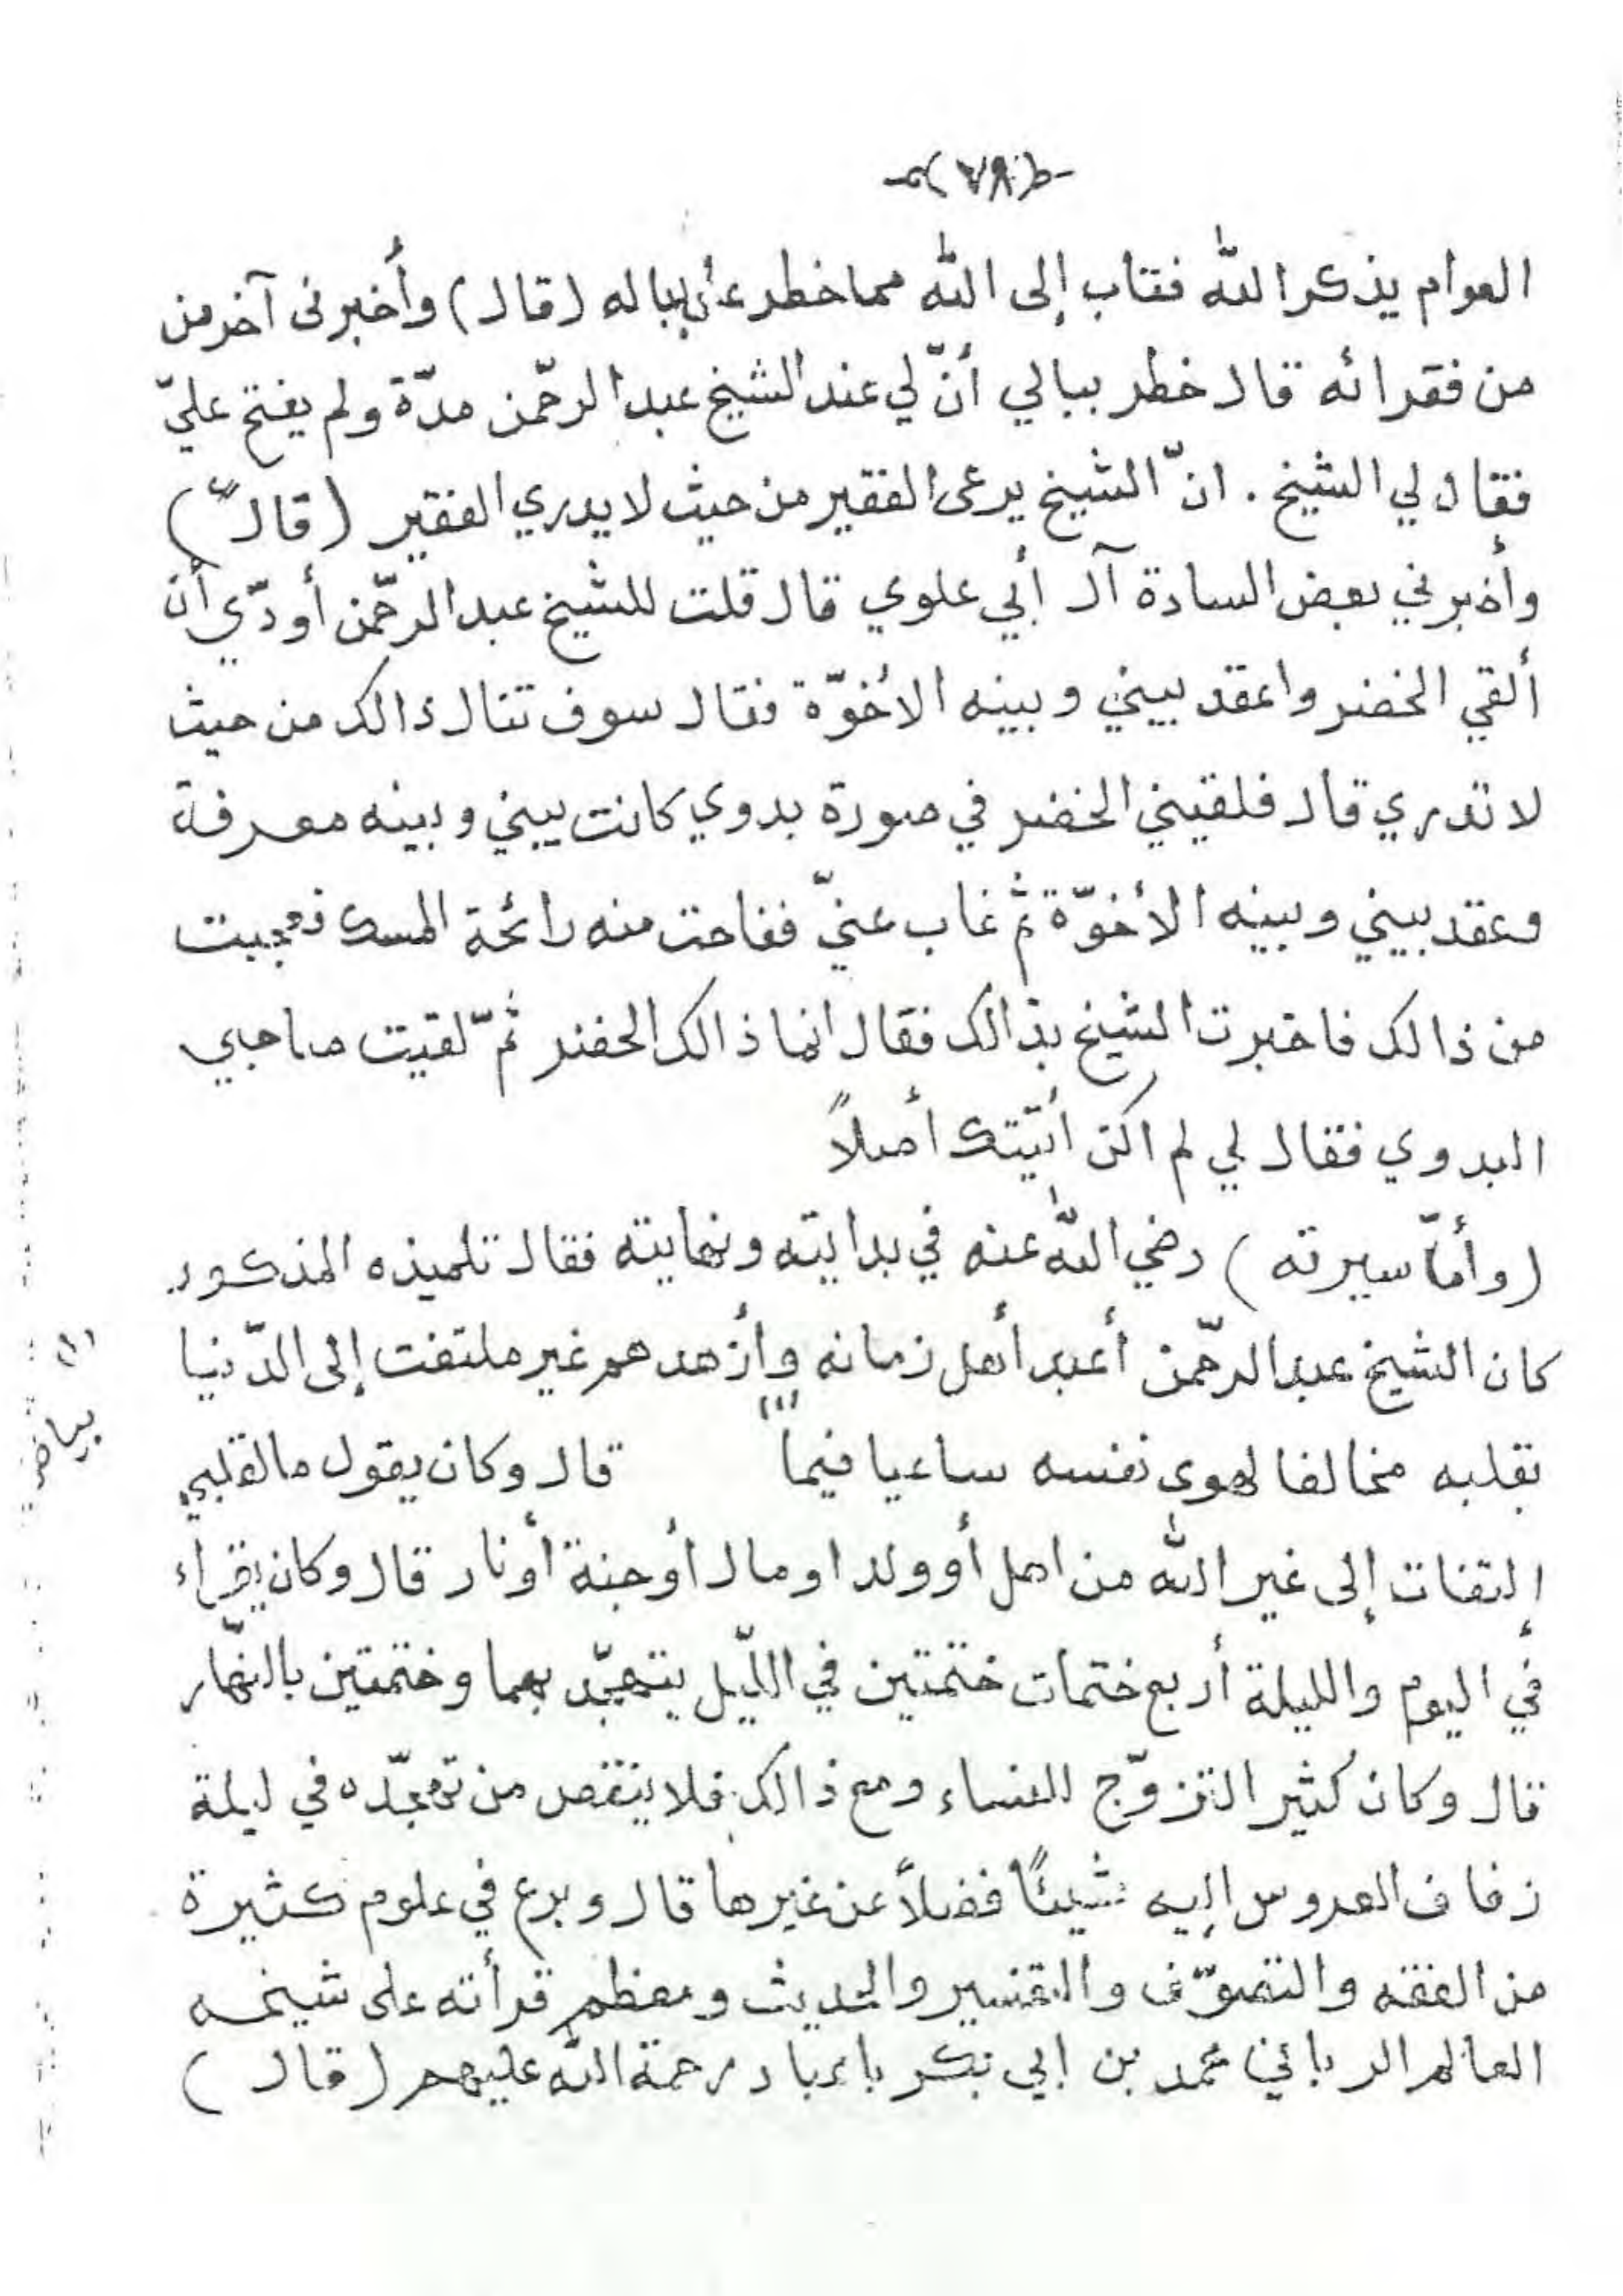 (٧٨)
العوام يذكر الله فتاب إلى الله مما خطر بباله (قال) وأخبرنى آخر من
من فقرائه قال خطر ببالي أنّ لي عند الشيخ عبد الرحّمن مدّة ولم يفتح عليّ
فقال لي الشيخ . انّ الشيخ يرعى الفقير من حيث لا يدري الفقير (قال)
وأخبرني بعض السادة آل أبي علوي قال قلت للشيخ عبد الرحّمن أودّي أن
ألقي الخضر واعقد بيني وبينه الأخوّة فقال سوف تنال ذالك من حيث
لا تدري قال فلقيني الخضر في صورة بدوي كانت بيني وبينه معرفة
وعقد بيني وبينه الأخوّة ثم غاب عنيّ ففاحت منه رائحة المسك فعجبت
من ذالك فاخبرت الشيخ بذالك فقال انما ذالك الخضر ثمّ لقيت صاحبي
البدوي فقال لي لم اكن أتيّتك أصلاً
(وأماّ سيرته) رضي الله عنه في بدايته ونهايته فقال تلميذه المذكور
كان الشيخ عبد الرحّمن أعبد أهل زمانه وأزهدهم غير ملتفت إلى الدّنيا
بقلبه مخالفا لهوى نفسه ساعيا فيما (١) قال وكان يقول ما لقلبي
إلتفات إلى غير الله من اهل أو ولد او مال أو جنة أو نار قال وكان يقراء
في اليوم والليلة أربع ختمات ختمتين في اللّيل يتهجّد بهما وختمتين بالنّهار
قال وكان كثير التزوّج للنساء ومع ذالك فلا ينقص من تهجّده في ليلة
زفاف العروس إليه شيئاً فضلاً عن غيرها قال وبرع في علوم كثيرة
من الفقه والتصوّف والتفسير والحديث ومعظم قرأته على شيخه
العالم الرباني محمد بن ابي بكر باعباد رحمة الله عليهم (قال)
(١) بياض